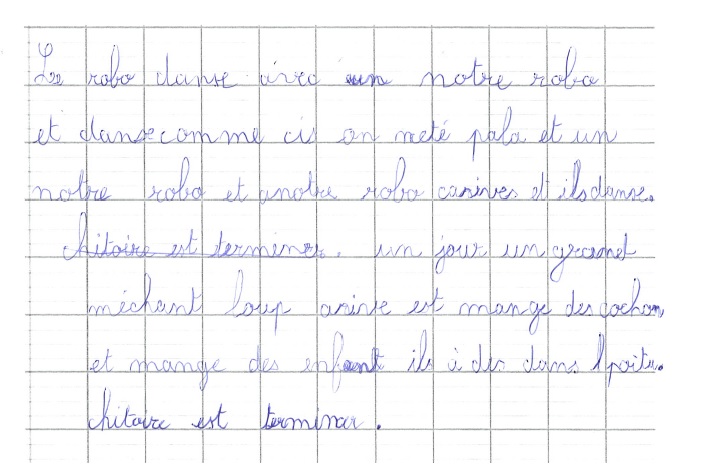 Le robo danse avec un notre robo
et danse comme ci on meté pala et un
notre robo et anotre robo carives et ils danse.
chitoire est terminer. un jour un grand
méchant loup arive est mange des cochon
et mange des enfant ils à des dans poitu.
chitoire est terminer.